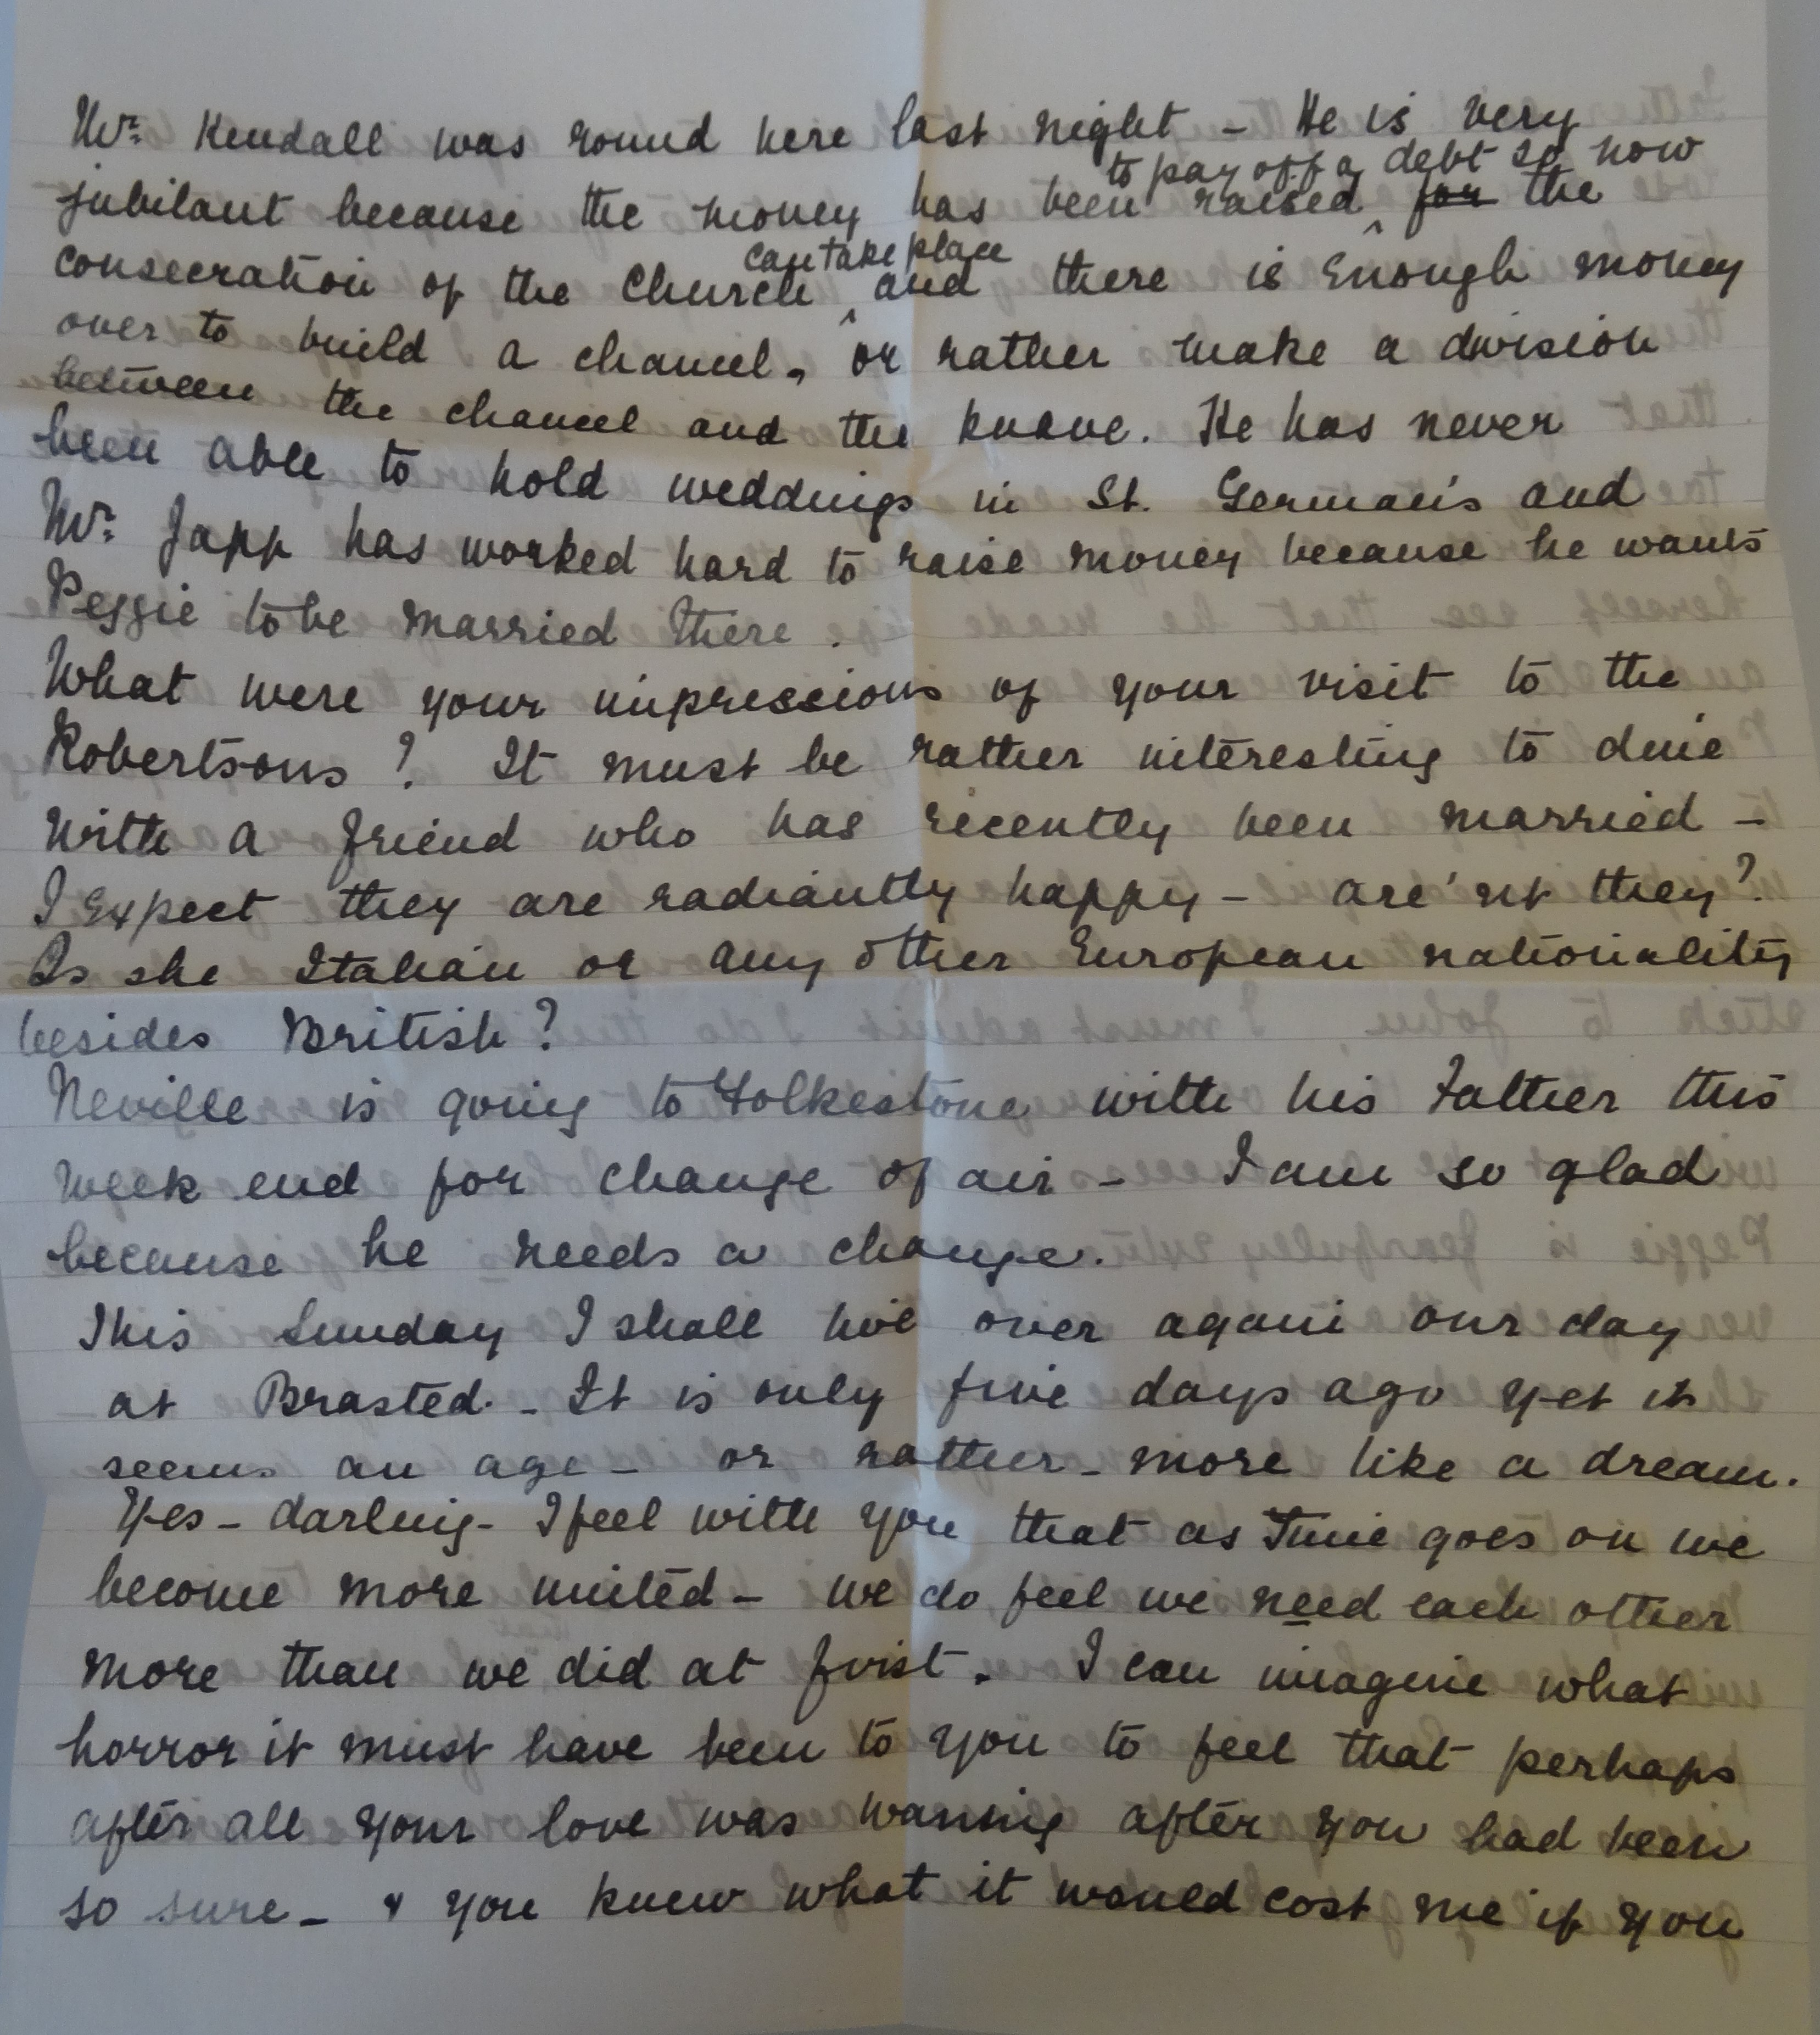 Mr. Kendall was round here last night - He is very
to pay off a debt so now
jubilant because the money has been raised ^ for the
can take place
consecration of the Church ^ and there is Enough money
over to build a chancel, or rather make a division
between the chancel and the knave. He has never
been able to hold weddings in St. Germain's and
Mr. Japp has worked hard to raise money because he wants
Peggie to be married there.
What were your impressions of your visit to the
Robertsons? It must be rather interesting to dine
with a friend who has recently been married -
I Expect they are radiantly happy - are'nt they?
Is she Italian or any other European nationality
besides British?
Neville is going to Folkestone with his Father this
week end for change of air - I am so glad
because he needs a change.
This Sunday I shall live over again our day
at Brasted. - It is only five days ago yet it
seems an age - or rather - more like a dream.
Yes - darling - I feel with you that as Time goes on we
become more united - we do feel we need each other
more than we did at first. I can imagine what
horror it must have been to you to feel that perhaps
after all your love was waning after you had been
so sure - & you knew what it would cost me if you